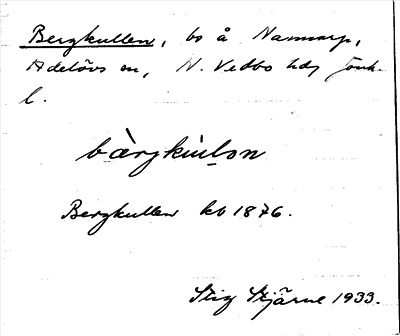 Bergkullen, bs å Nammarp,
Adelövs sn, N. Vedbo hd, Jönk.
l.
bàrgkùlon
Bergkullen kb 1876.
Stig Stjärne 1933.